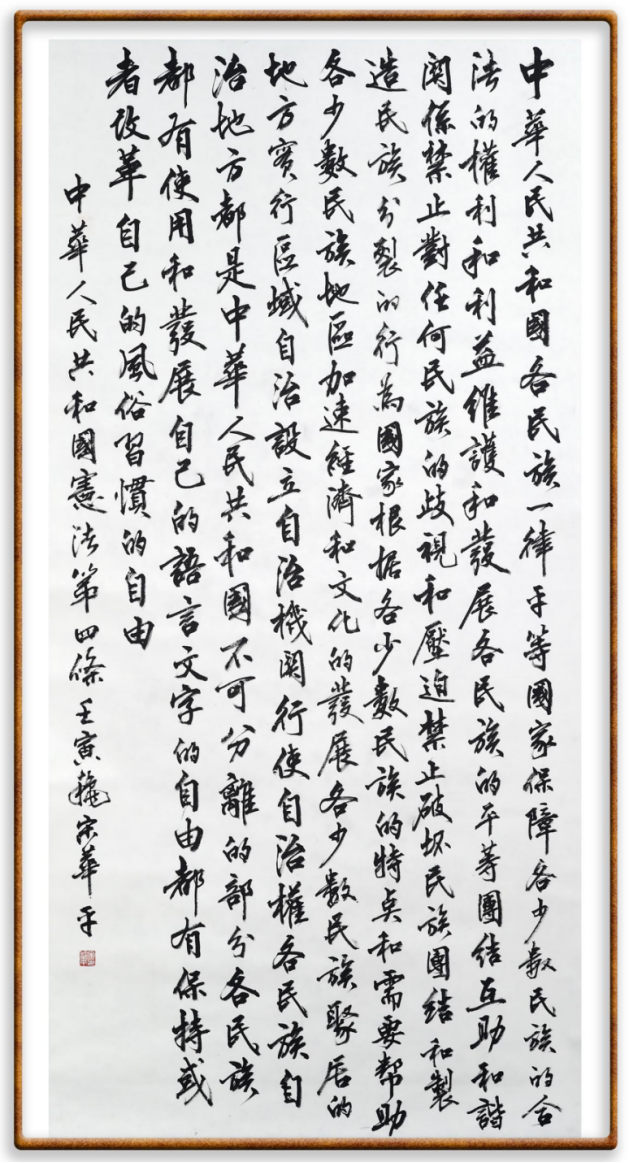 中華人民共和國各民族一律平等國家保障各少數民族的合
法的權利和利益維護和發展各民族的平等團結互助和諧
関係禁止對任何民族的歧視和壓迫禁止破坏民族團结和製
造民族分裂的行為國家根据各少數民族的特点和需要幇助
各少數民族地區加速經濟和文化的發展各少數民族聚居的
地方實行區域自治設立自治機関行使自治權各民族自
治地方都是中華人民共和國不可分離的部分各民族
都有使用和發展自己的語言文字的自由都有保持或
者改革自己的風俗習慣的自由
中華人民共和國憲法第四條壬寅秋宋華平